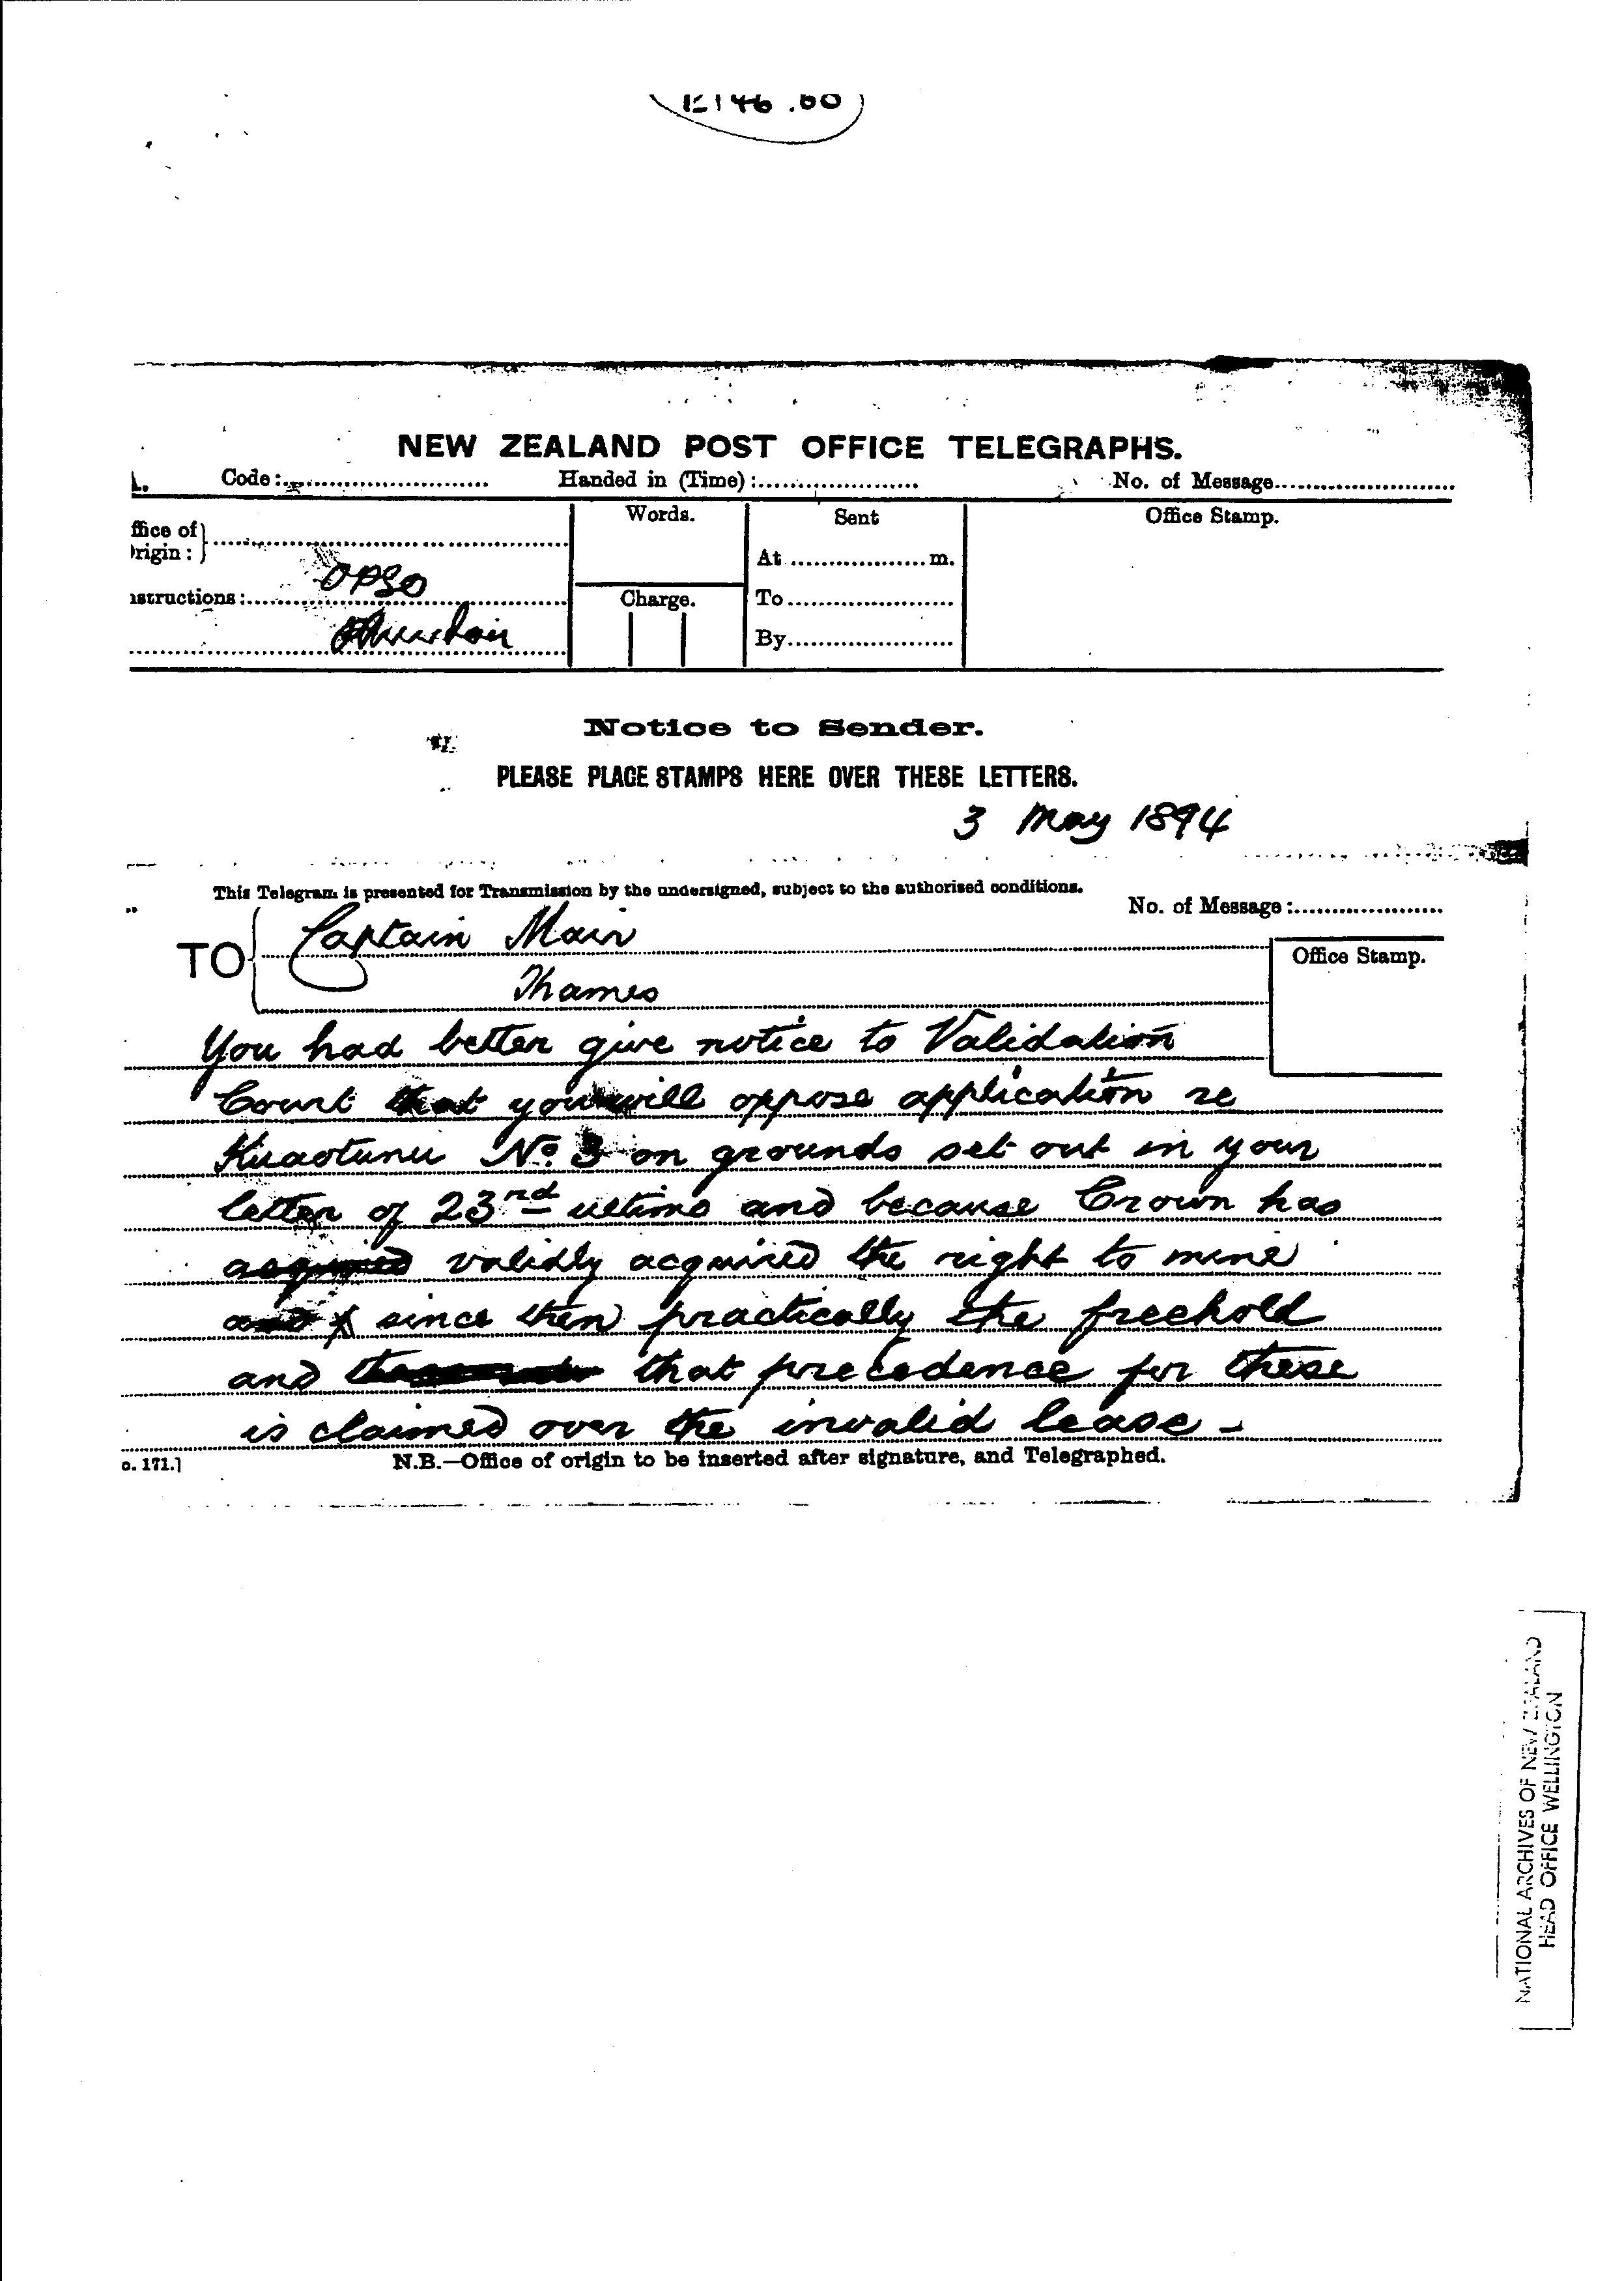 E146.60
NEW ZEALAND POST OFFICE TELEGRAPHS.
Code:
Handed in (Time):
No. of Message
ffice of
Words.
Sent
Office Stamp.
rigin:
At m.
OPSO
structions:
Charge.
To
By
Notice to Sender.
PLEASE PLACE STAMPS HERE OVER THESE LETTERS.
3 May 1894
This Telegram is presented for Transmission by the undersigned, subject to the authorised conditions.
No. of Message:
TO Captain Mair
Office Stamp.
Thames
You had better give notice to Validation
Court that you will oppose application re
Kuaotunu No. 3 on grounds set out in your
letter of 23rd ultimo and because Crown has
acquired validly acquired the right to mine
and since then practically the freehold
and that precedence for these
is claimed over the invalid lease -
o. 171.]
N.B.—Office of origin to be inserted after signature, and Telegraphed.
NATIONAL ARCHIVES OF NEW ZEALAND
HEAD OFFICE WELLINGTON